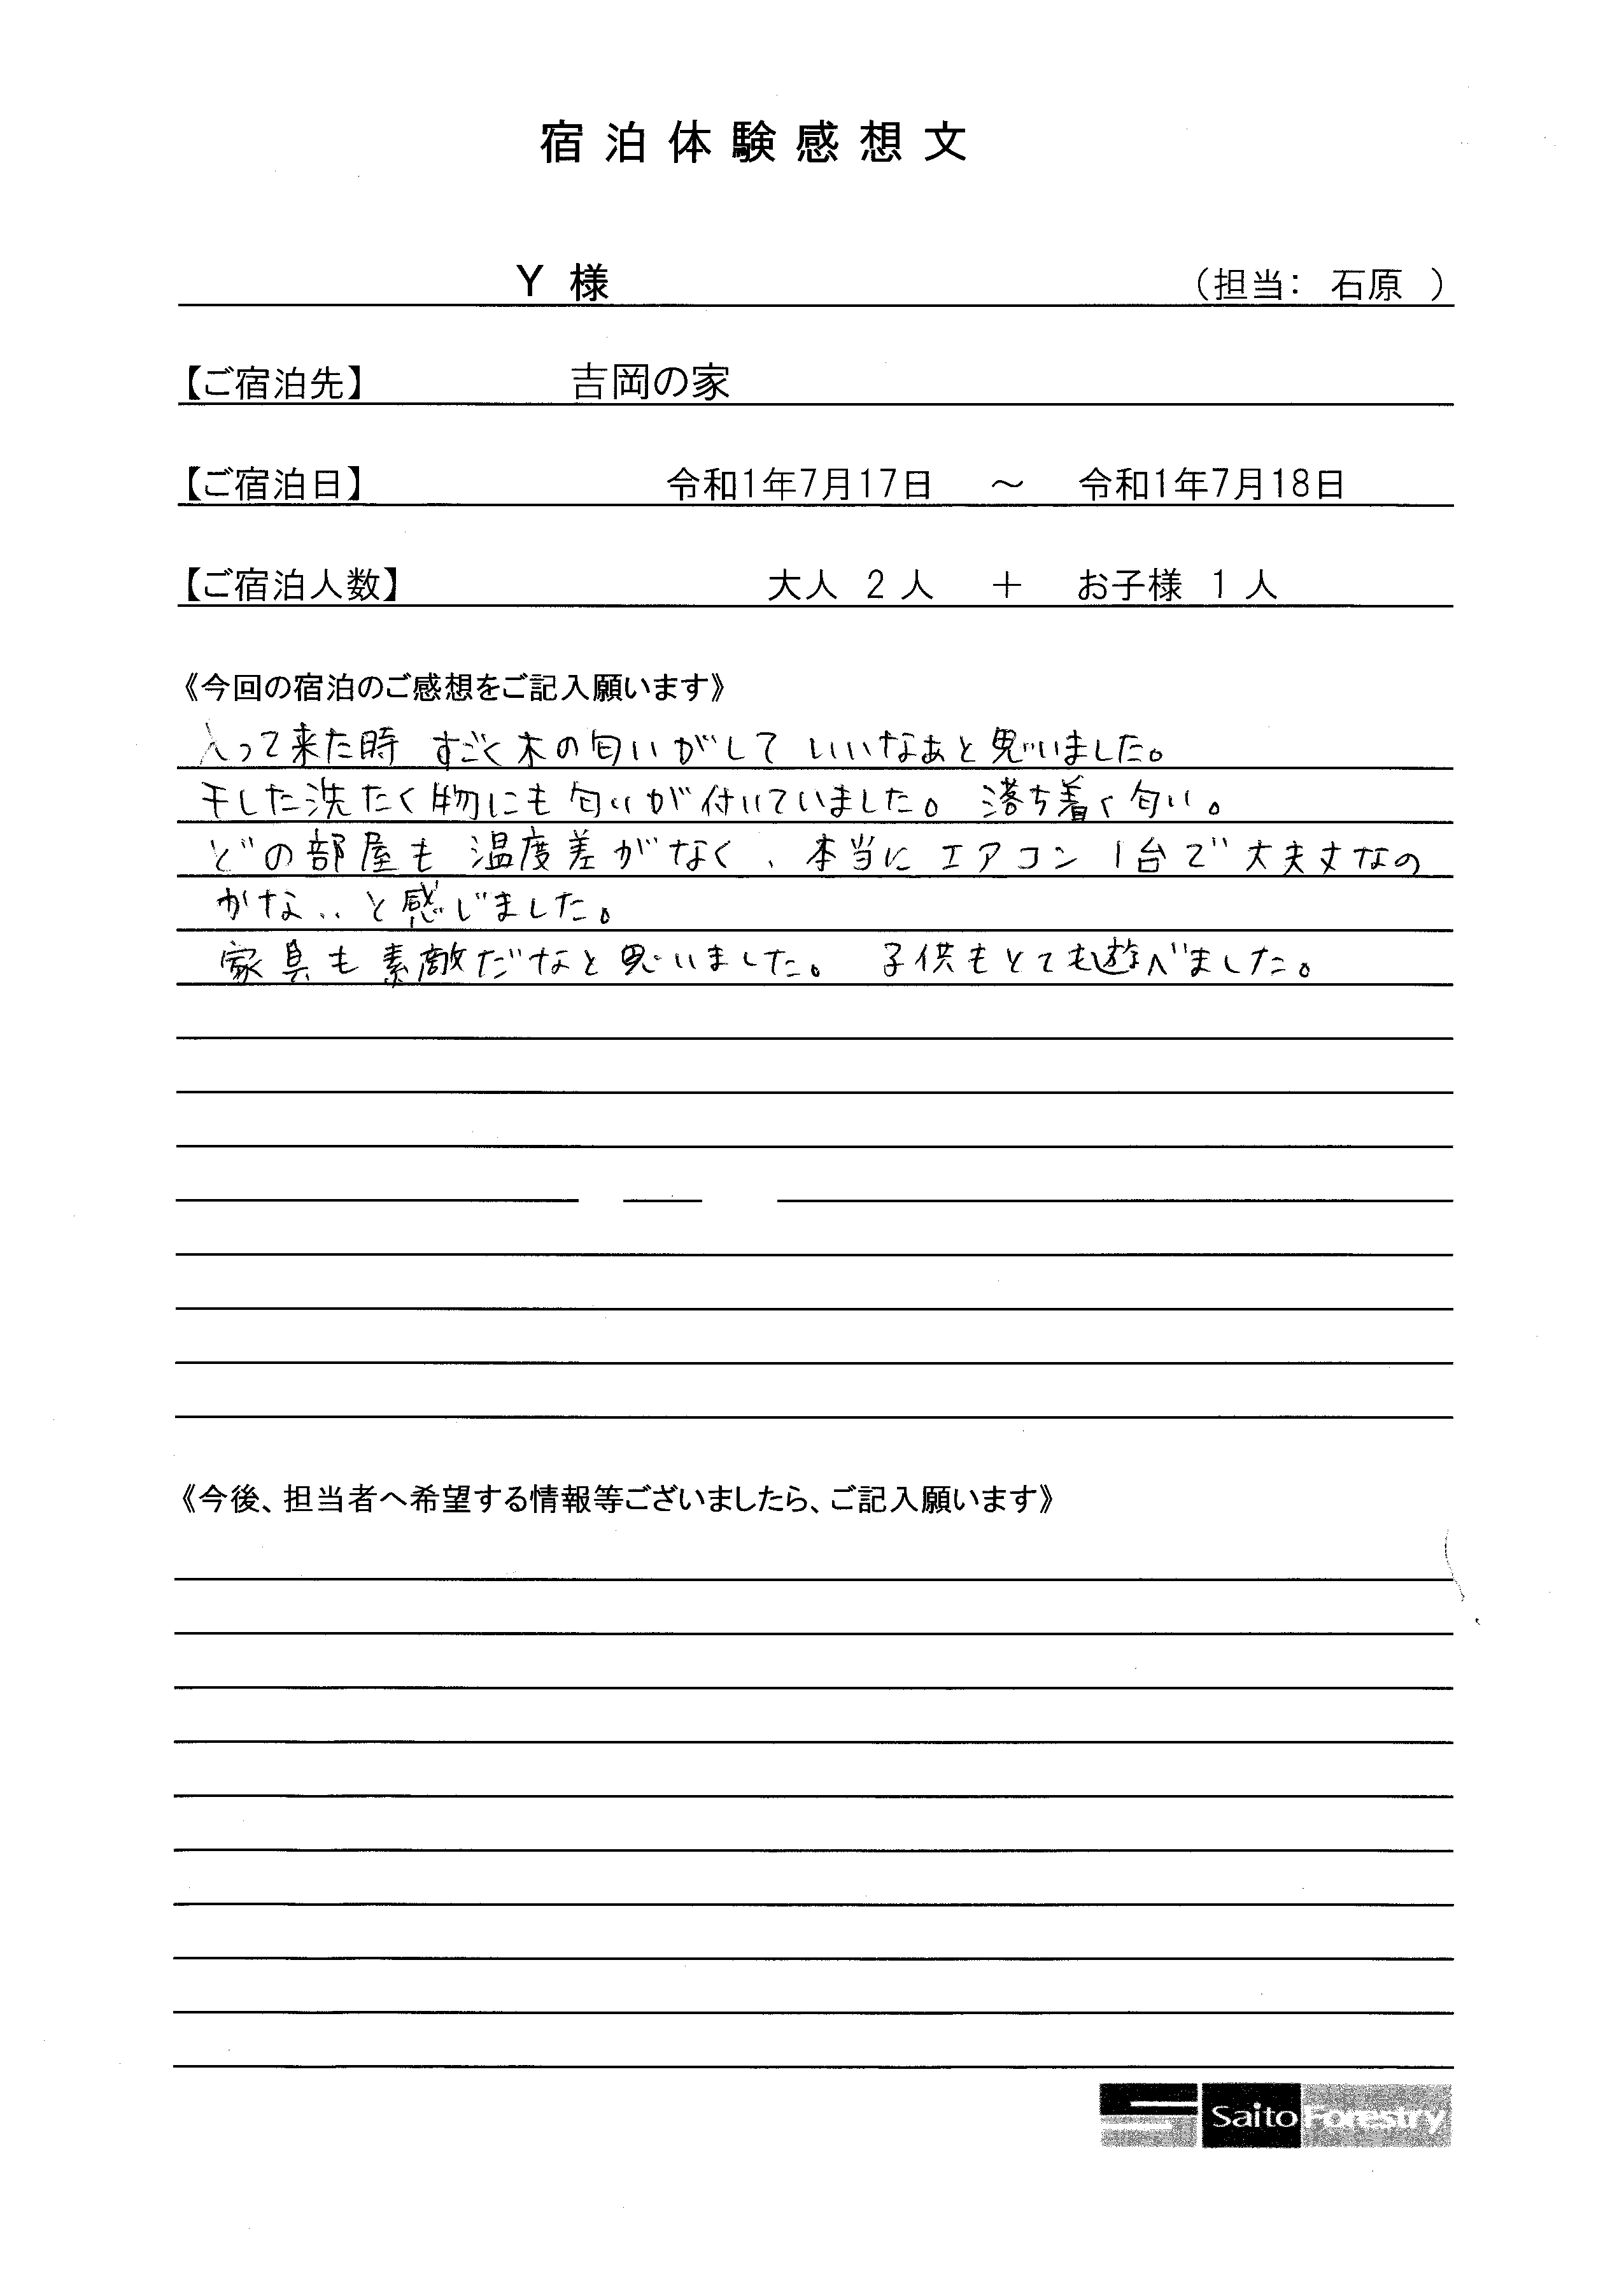 宿泊体験感想文
Y 様 （担当： 石原 ）
【ご宿泊先】 吉岡の家
【ご宿泊日】 令和1年7月17日 ～ 令和1年7月18日
【ご宿泊人数】 大人 2 人 ＋ お子様 1 人
《今回の宿泊のご感想をご記入願います》
入って来た時 すごく木の匂いがして いいなあと思いました。
干した洗たく物にも匂いが付いていました。 落ち着く匂い。
どの部屋も温度差がなく、本当にエアコン1台で大夫丈なの
かな..と感じました。
家具も素敵だなと思いました。 子供もとても遊べました。
《今後、担当者へ希望する情報等ございましたら、ご記入願います》
Saito Forestry